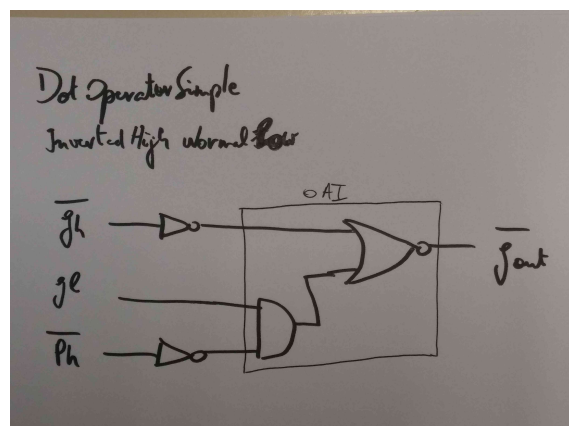 Dot Operator Simple
Inverted High Normal Low
OAI
g̅h̅
g̅o̅u̅t̅
gl
P̅h̅